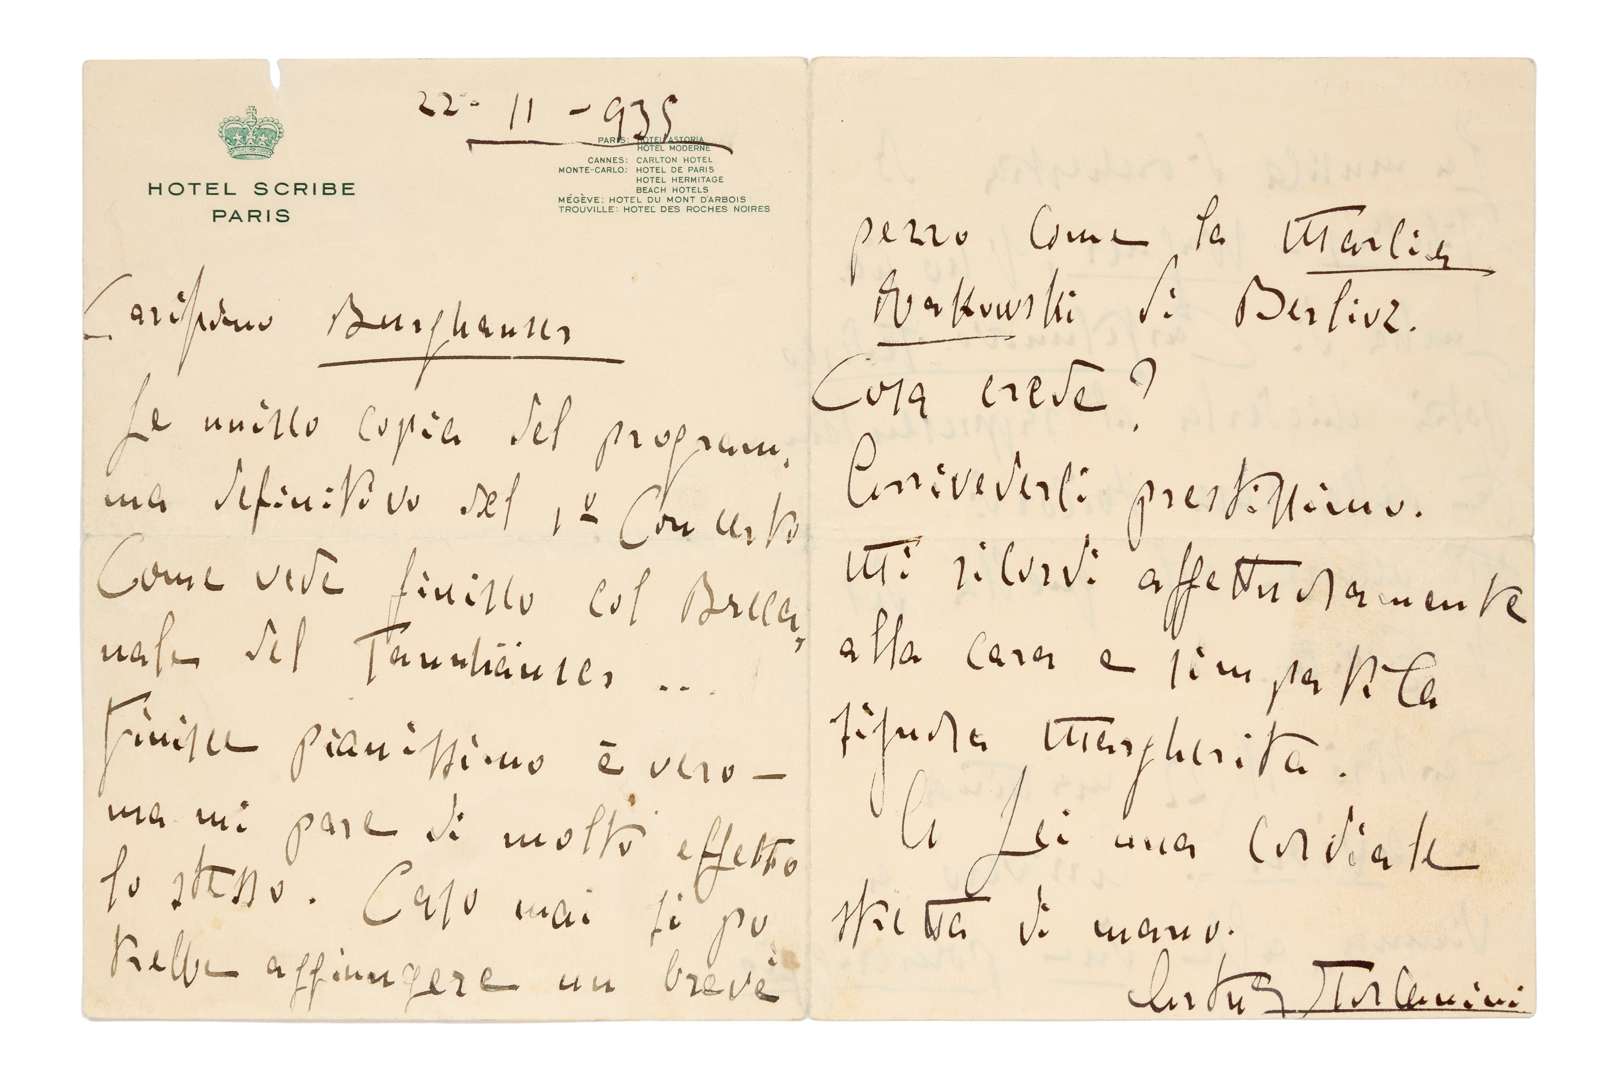 HOTEL SCRIBE
PARIS
22 - 11 - 935
PARIS: HOTEL ASTORIA
HOTEL MODERNE
CANNES: CARLTON HOTEL
MONTE-CARLO: HOTEL DE PARIS
HOTEL HERMITAGE
BEACH HOTELS
MÉGÈVE: HOTEL DU MONT D'ARBOIS
TROUVILLE: HOTEL DES ROCHES NOIRES
Carissimo Burghauser
Le unisco copia del program,
ma definitivo del 1º Concerto
Come vede finisco col Bacca,
nale del Tannhäuser ...
Finisce pianissimo è vero —
ma mi pare di molto effetto
lo stesso. Caso mai si po
trebbe aggiungere un breve
pezzo come la Marcia
Rakowski di Berlioz.
Cosa crede?
Arrivederci prestissimo.
Mi ricordi affettuosamente
alla cara e simpatica
signora Margherita.
A Lei una cordiale
stretta di mano.
Arturo Toscanini